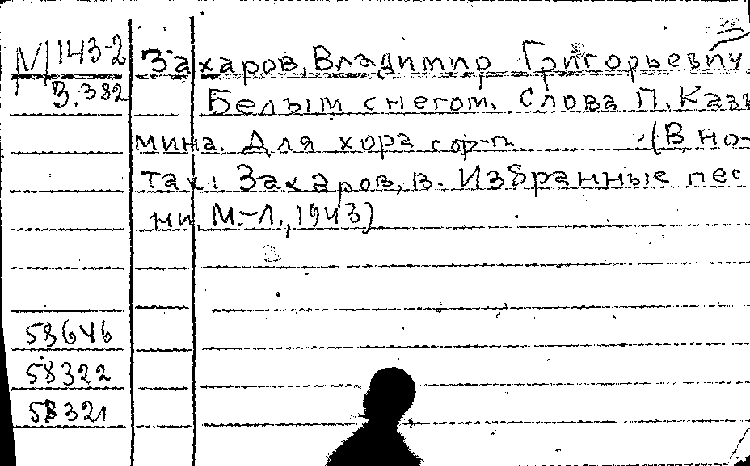 М 143-2
З.382
Захаров, Владимир Григорьевич
Белым снегом. Слова П. Каз
мина. Для хора с ф-п. (В но-
тах: Захаров, В. Избранные пес
ни. М.-Л., 1943)
58646
58322
58321